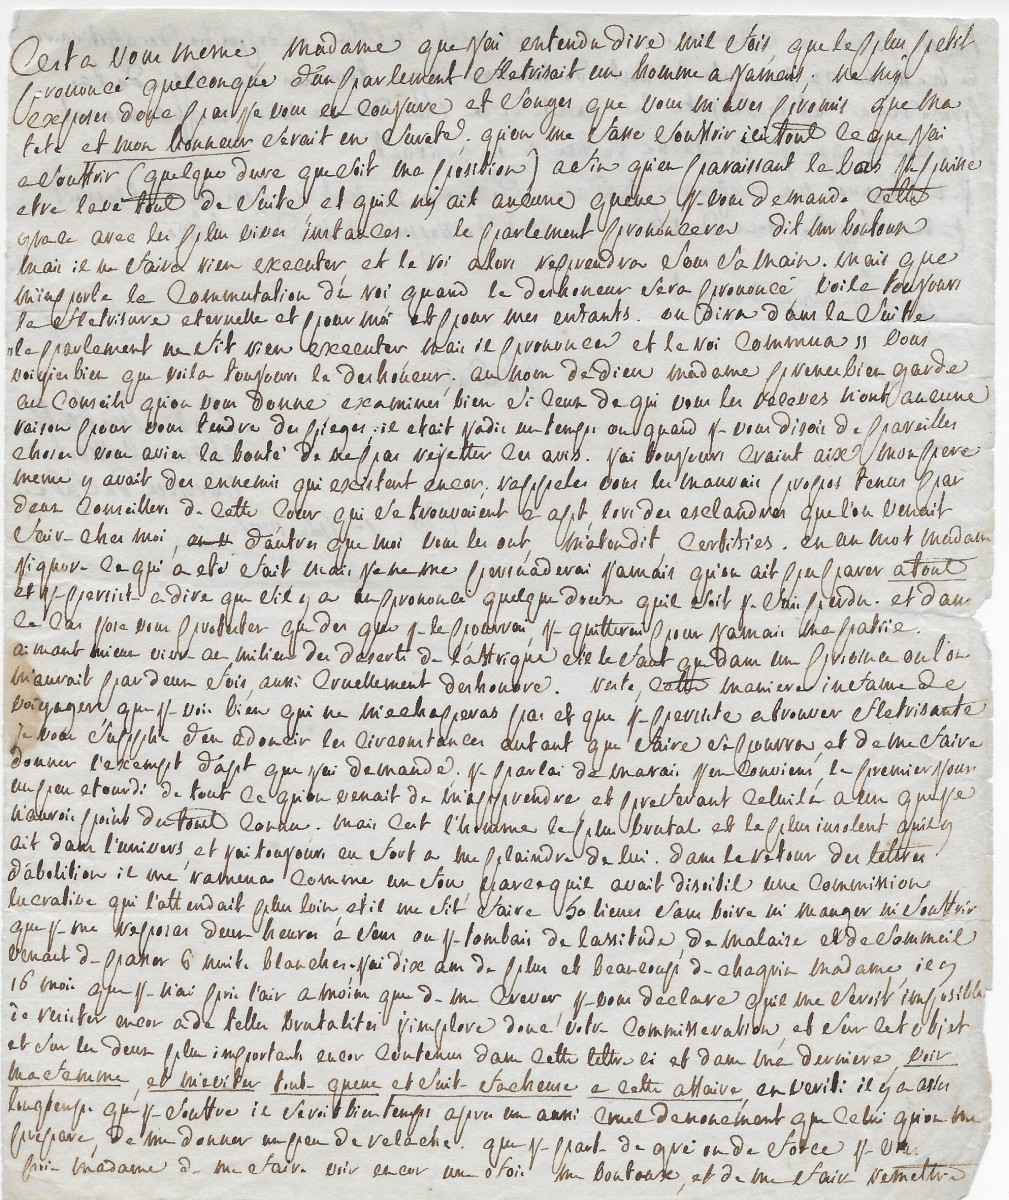 Cest a vous meme madame que jai entendu dire mil fois que le plus petit
prononcé quelconque d'un parlement fletrisait un homme a jamais. ne my
exposes donc pas je vous en conjure et songes que vous m'aves promis que ma
tete et mon honneur serait en sureté. qu'on me fasse souffrir ici tout ce que jai
a souffrir (quelque dure que soit ma position) afin qu'en paraissant la bas je puisse
etre lavé tout de suite et quil ny ait aucune queue je vous demande cette
grace avec les plus vives instances. le parlement prononcera dit mr boutoux
mais il ne faira rien executer, et le roi alors reprendra sous sa main. mais que
m'importe la commutation du roi quand le deshoneur sera prononcé voila toujours
la fletrisure eternelle et pour moi et pour mes enfants. on dira dans la suitte
"le parlement ne fit rien executer mais il prononcea et le roi commua" vous
voiyies bien que voila toujours le deshoneur. au nom de dieu madame prenes bien garde
au conseils qu'on vous donne examines bien si ceux de qui vous les receves n'ont aucune
raison pour vous tendre des pieges; il etait jadis un temps ou quand je vous disois de pareilles
choses vous avies la bonté de ne pas rejetter ces avis. j'ai toujours craint aix mon pere
meme y avait des ennemis qui existent encor. rappeles vous les mauvais propos tenus par
deux conseillers de cette cour qui se trouvaient a apt, lors des esclandres que l'on venait
fair ches moi, d'autres que moi vous les ont, m'atondit, certifies. en un mot madame
j'ignore ce qui a eté fait mais je ne me persuaderai jamais qu'on ait pu parer a tout
et je persiste a dire que s'il y a un prononcé quelque doux quil soit je suis perdu. et dans
ce cas jose vous protester que des que je le pourrai je quitterai pour jamais ma patrie.
aimant mieux vivre au milieu des deserts de l'affrique s'il le faut que dans une province ou l'on
m'aurait par deux fois, aussi cruellement deshonoré. reste, cette maniere infame de
voiyager que je vois bien qui ne m'echapera pas et que je persiste a trouver fletrisante
je vous supplie d'en adoucir les circonstances autant que faire se pourra et de me faire
donner l'exempt d'apt que jai demandé. je parlai de marais j'en conviens, le premier jour
un peu etourdi de tout ce qu'on venait de m'apprendre et preferant celui la a un que je
n'aurois point du tout connu. mais cest l'homme le plus brutal et le plus insolent quil y
ait dans l'univers et jai toujours eu fort a me plaindre de lui. dans le retour des lettres
d'abolition il me ramena comme un fou parcequil avait disoitil une commission
lucrative qui l'attendait plus loin et il me fit faire 50 lieues sans boire ni manger ni souffrir
que je me reposas deux heures à sens ou je tombais de lassitude, de malaise et de sommeil
venant de passer 6 nuits blanches. jai dix ans de plus et beaucoup de chagrin madame, il y
16 mois que je n'ai pris l'air a moins que de me crever je vous declare quil me seroit impossible
de resister encor a de telles brutalités j'implore donc votre commiseration et sur cet objet
et sur les deux plus importants encor contenus dans cette lettre ci et dans ma derniere voir
ma femme, et m'eviter tout queue et suit facheuse a cette affaire, en verité il y a asses
longtemps que je souffre il seroit bien temps apres un aussi cruel denouement que celui qu'on me
prepare, de me donner un peu de relache. que je parte de gré ou de force je vous
prie madame de me faire voir encor une fois mr boutoux, et de me faire remettre